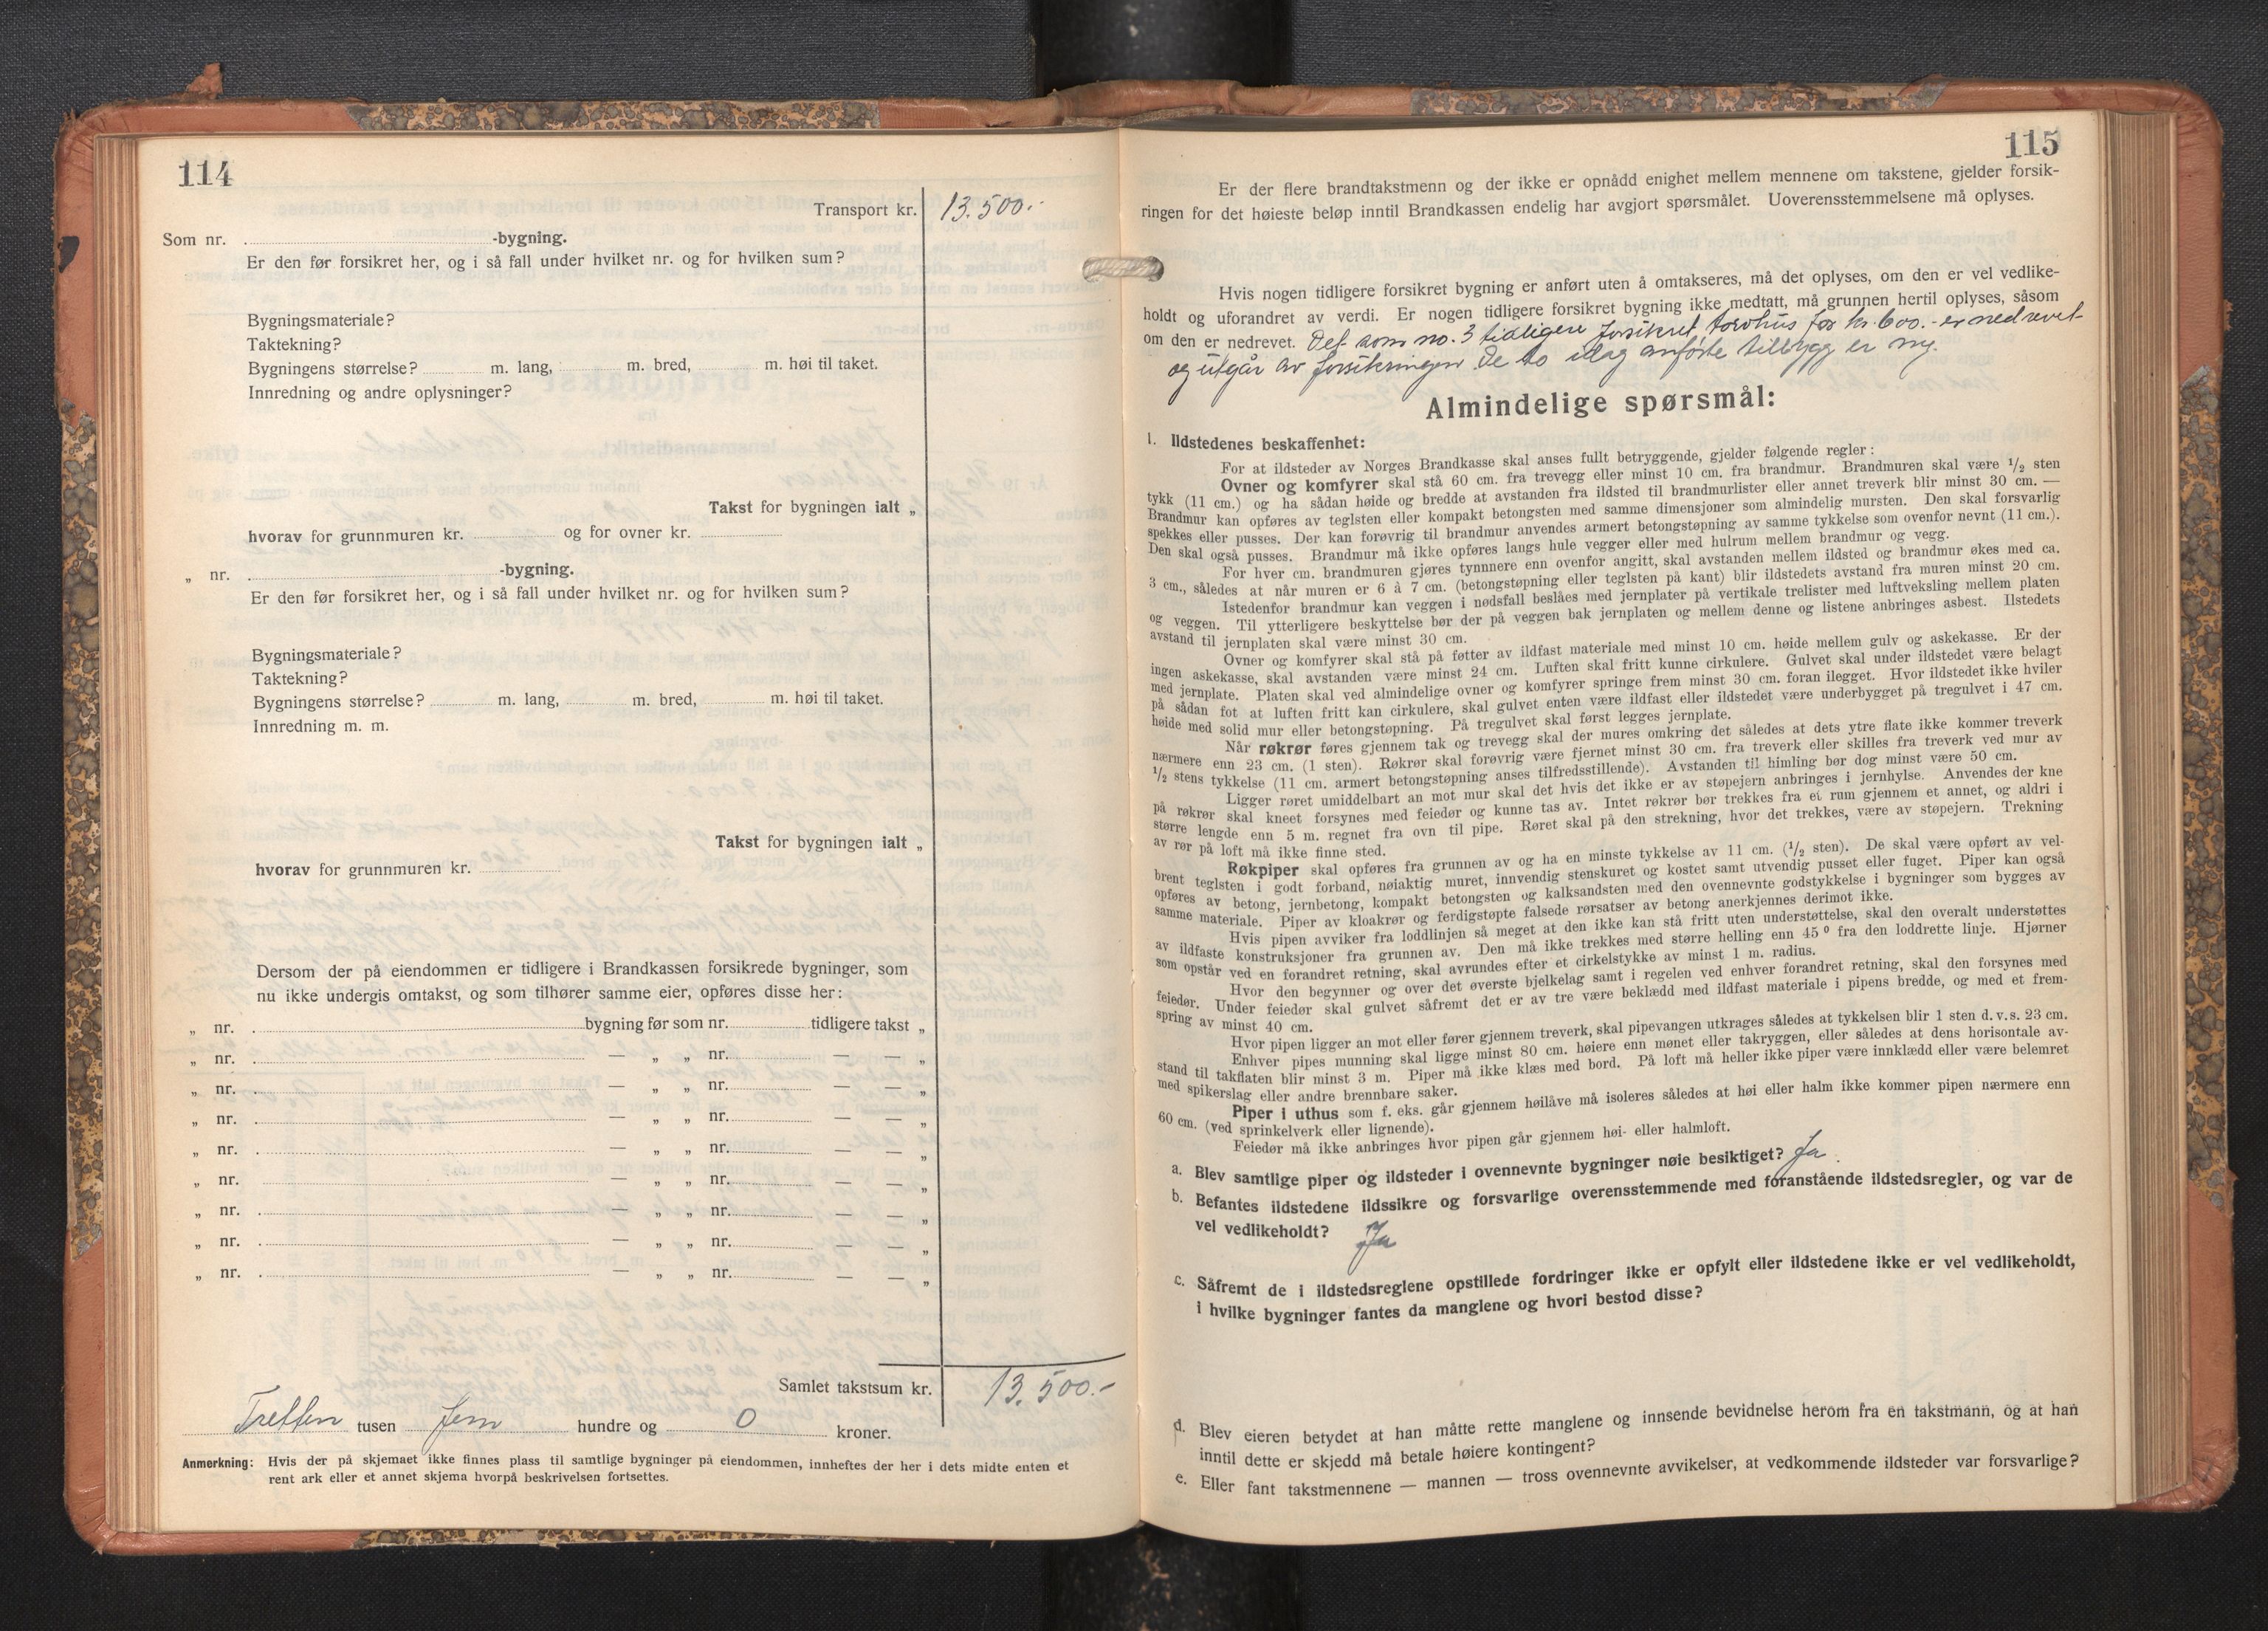 114
Transport kr. 13.500.-
Som nr. -bygning.
Er den før forsikret her, og i så fall under hvilket nr. og for hvilken sum?
Bygningsmateriale?
Taktekning?
Bygningens størrelse? m. lang, m. bred, m. høi til taket.
Innredning og andre oplysninger?
Takst for bygningen ialt „
hvorav for grunnmuren kr. og for ovner kr.
„ nr. -bygning.
Er den før forsikret her, og i så fall under hvilket nr. og for hvilken sum?
Bygningsmateriale?
Taktekning?
Bygningens størrelse? m. lang, m. bred, m. høi til taket.
Innredning m. m.
Takst for bygningen ialt „
hvorav for grunnmuren kr.
Dersom der på eiendommen er tidligere i Brandkassen forsikrede bygninger, som
nu ikke undergis omtakst, og som tilhører samme eier, opføres disse her:
„ nr. bygning før som nr. tidligere takst „
„ nr. — „ „ nr. — — „
„ nr. — „ „ nr. — — „
„ nr. — „ „ nr. — — „
„ nr. — „ „ nr. — — „
„ nr. — „ „ nr. — — „
„ nr. — „ „ nr. — — „
„ nr. — „ „ nr. — — „
„ nr. — „ „ nr. — — „
Samlet takstsum kr. 13.500.-
Tretten tusen fem hundre og 0 kroner.
Anmerkning: Hvis der på skjemaet ikke finnes plass til samtlige bygninger på eiendommen, innheftes der her i dets midte enten et
rent ark eller et annet skjema hvorpå beskrivelsen fortsettes.
115
Er der flere brandtakstmenn og der ikke er opnådd enighet mellem mennene om takstene, gjelder forsik-
ringen for det høieste beløp inntil Brandkassen endelig har avgjort spørsmålet. Uoverensstemmelsene må oplyses.
Hvis nogen tidligere forsikret bygning er anført uten å omtakseres, må det oplyses, om den er vel vedlike-
holdt og uforandret av verdi. Er nogen tidligere forsikret bygning ikke medtatt, må grunnen hertil oplyses, såsom
om den er nedrevet. Det som no. 3 tidligere forsikret torvhus for kr. 600.- er nedrevet
og utgår av forsikringen. De to idag anførte tilbygg er ny.
Almindelige spørsmål:
1. Ildstedenes beskaffenhet:
For at ildsteder av Norges Brandkasse skal anses fullt betryggende, gjelder følgende regler:
Ovner og komfyrer skal stå 60 cm. fra trevegg eller minst 10 cm. fra brandmur. Brandmuren skal være 1/2 sten
tykk (11 cm.) og ha sådan høide og bredde at avstanden fra ildsted til brandmurlister eller annet treverk blir minst 30 cm. —
Brandmur kan opføres av teglsten eller kompakt betongsten med samme dimensjoner som almindelig mursten. Den skal forsvarlig
spekkes eller pusses. Der kan forøvrig til brandmur anvendes armert betongstøpning av samme tykkelse som ovenfor nevnt (11 cm.).
Den skal også pusses. Brandmur må ikke opføres langs hule vegger eller med hulrum mellem brandmur og vegg.
For hver cm. brandmuren gjøres tynnnere enn ovenfor angitt, skal avstanden mellem ildsted og brandmur økes med ca.
3 cm., således at når muren er 6 à 7 cm. (betongstøpning eller teglsten på kant) blir ildstedets avstand fra muren minst 20 cm.
Istedenfor brandmur kan veggen i nødsfall beslåes med jernplater på vertikale trelister med luftveksling mellem platen
og veggen. Til ytterligere beskyttelse bør der på veggen bak jernplaten og mellem denne og listene anbringes asbest. Ilstedets
avstand til jernplaten skal være minst 30 cm.
Ovner og komfyrer skal stå på føtter av ildfast materiale med minst 10 cm. høide mellem gulv og askekasse. Er der
ingen askekasse, skal avstanden være minst 24 cm. Luften skal fritt kunne cirkulere. Gulvet skal under ildstedet være belagt
med jernplate. Platen skal ved almindelige ovner og komfyrer springe frem minst 30 cm. foran ilegget. Hvor ildstedet ikke hviler
på sådan fot at luften fritt kan cirkulere, skal gulvet enten være ildfast eller ildstedet være underbygget på tregulvet i 47 cm.
høide med solid mur eller betongstøpning. På tregulvet skal først legges jernplate.
Når røkrør føres gjennem tak og trevegg skal der mures omkring det således at dets ytre flate ikke kommer treverk
nærmere enn 23 cm. (1 sten). Røkrør skal forøvrig være fjernet minst 30 cm. fra treverk eller skilles fra treverk ved mur av
1/2 stens tykkelse (11 cm. armert betongstøpning anses tilfredsstillende). Avstanden til himling bør dog minst være 50 cm.
Ligger røret umiddelbart an mot mur skal det hvis det ikke er av støpejern anbringes i jernhylse. Anvendes der kne
på røkrør skal kneet forsynes med feiedør og kunne tas av. Intet røkrør bør trekkes fra et rum gjennem et annet, og aldri i
større lengde enn 5 m. regnet fra ovn til pipe. Røret skal på den strekning, hvor det trekkes, være av støpejern. Trekning
av rør på loft må ikke finne sted.
Røkpiper skal opføres fra grunnen av og ha en minste tykkelse av 11 cm. (1/2 sten). De skal være opført av vel-
brent teglsten i godt forband, nøiaktig muret, innvendig stenskuret og kostet samt utvendig pusset eller fuget. Piper kan også
opføres av betong, jernbetong, kompakt betongsten og kalksandsten med den ovennevnte godstykkelse i bygninger som bygges av
samme materiale. Piper av kloakrør og ferdigstøpte falsede rørsatser av betong anerkjennes derimot ikke.
Hvis pipen avviker fra loddlinjen så meget at den ikke kan stå fritt uten understøttelse, skal den overalt understøttes
av ildfaste konstruksjoner fra grunnen av. Den må ikke trekkes med større helling enn 45° fra den loddrette linje. Hjørner
som opstår ved en forandret retning, skal avrundes efter et cirkelstykke av minst 1 m. radius.
Hvor den begynner og over det øverste bjelkelag samt i regelen ved enhver forandret retning, skal den forsynes med
feiedør. Under feiedør skal gulvet såfremt det er av tre være beklædd med ildfast materiale i pipens bredde, og med et frem-
spring av minst 40 cm.
Hvor pipen ligger an mot eller fører gjennem treverk, skal pipevangen utkrages således at tykkelsen blir 1 sten d. v. s. 23 cm.
Enhver pipes munning skal ligge minst 80 cm. høiere enn mønet eller takryggen, eller således at dens horisontale av-
stand til takflaten blir minst 3 m. Piper må ikke klæs med bord. På loft må heller ikke piper være innklædd eller være belemret
med spikerslag eller andre brennbare saker.
Piper i uthus som f. eks. går gjennem høilåve må isoleres således at høi eller halm ikke kommer pipen nærmere enn
60 cm. (ved sprinkelverk eller lignende).
Feiedør må ikke anbringes hvor pipen går gjennem høi- eller halmloft.
a. Blev samtlige piper og ildsteder i ovennevnte bygninger nøie besiktiget? Ja
b. Befantes ildstedene ildssikre og forsvarlige overensstemmende med foranstående ildstedsregler, og var de
vel vedlikeholdt? Ja
c. Såfremt de i ildstedsreglene opstillede fordringer ikke er opfylt eller ildstedene ikke er vel vedlikeholdt,
i hvilke bygninger fantes da manglene og hvori bestod disse?
d. Blev eieren betydet at han måtte rette manglene og innsende bevidnelse herom fra en takstmann, og at han
inntil dette er skjedd må betale høiere kontingent?
e. Eller fant takstmennene — mannen — tross ovennevnte avvikelser, at vedkommende ildsteder var forsvarlige?